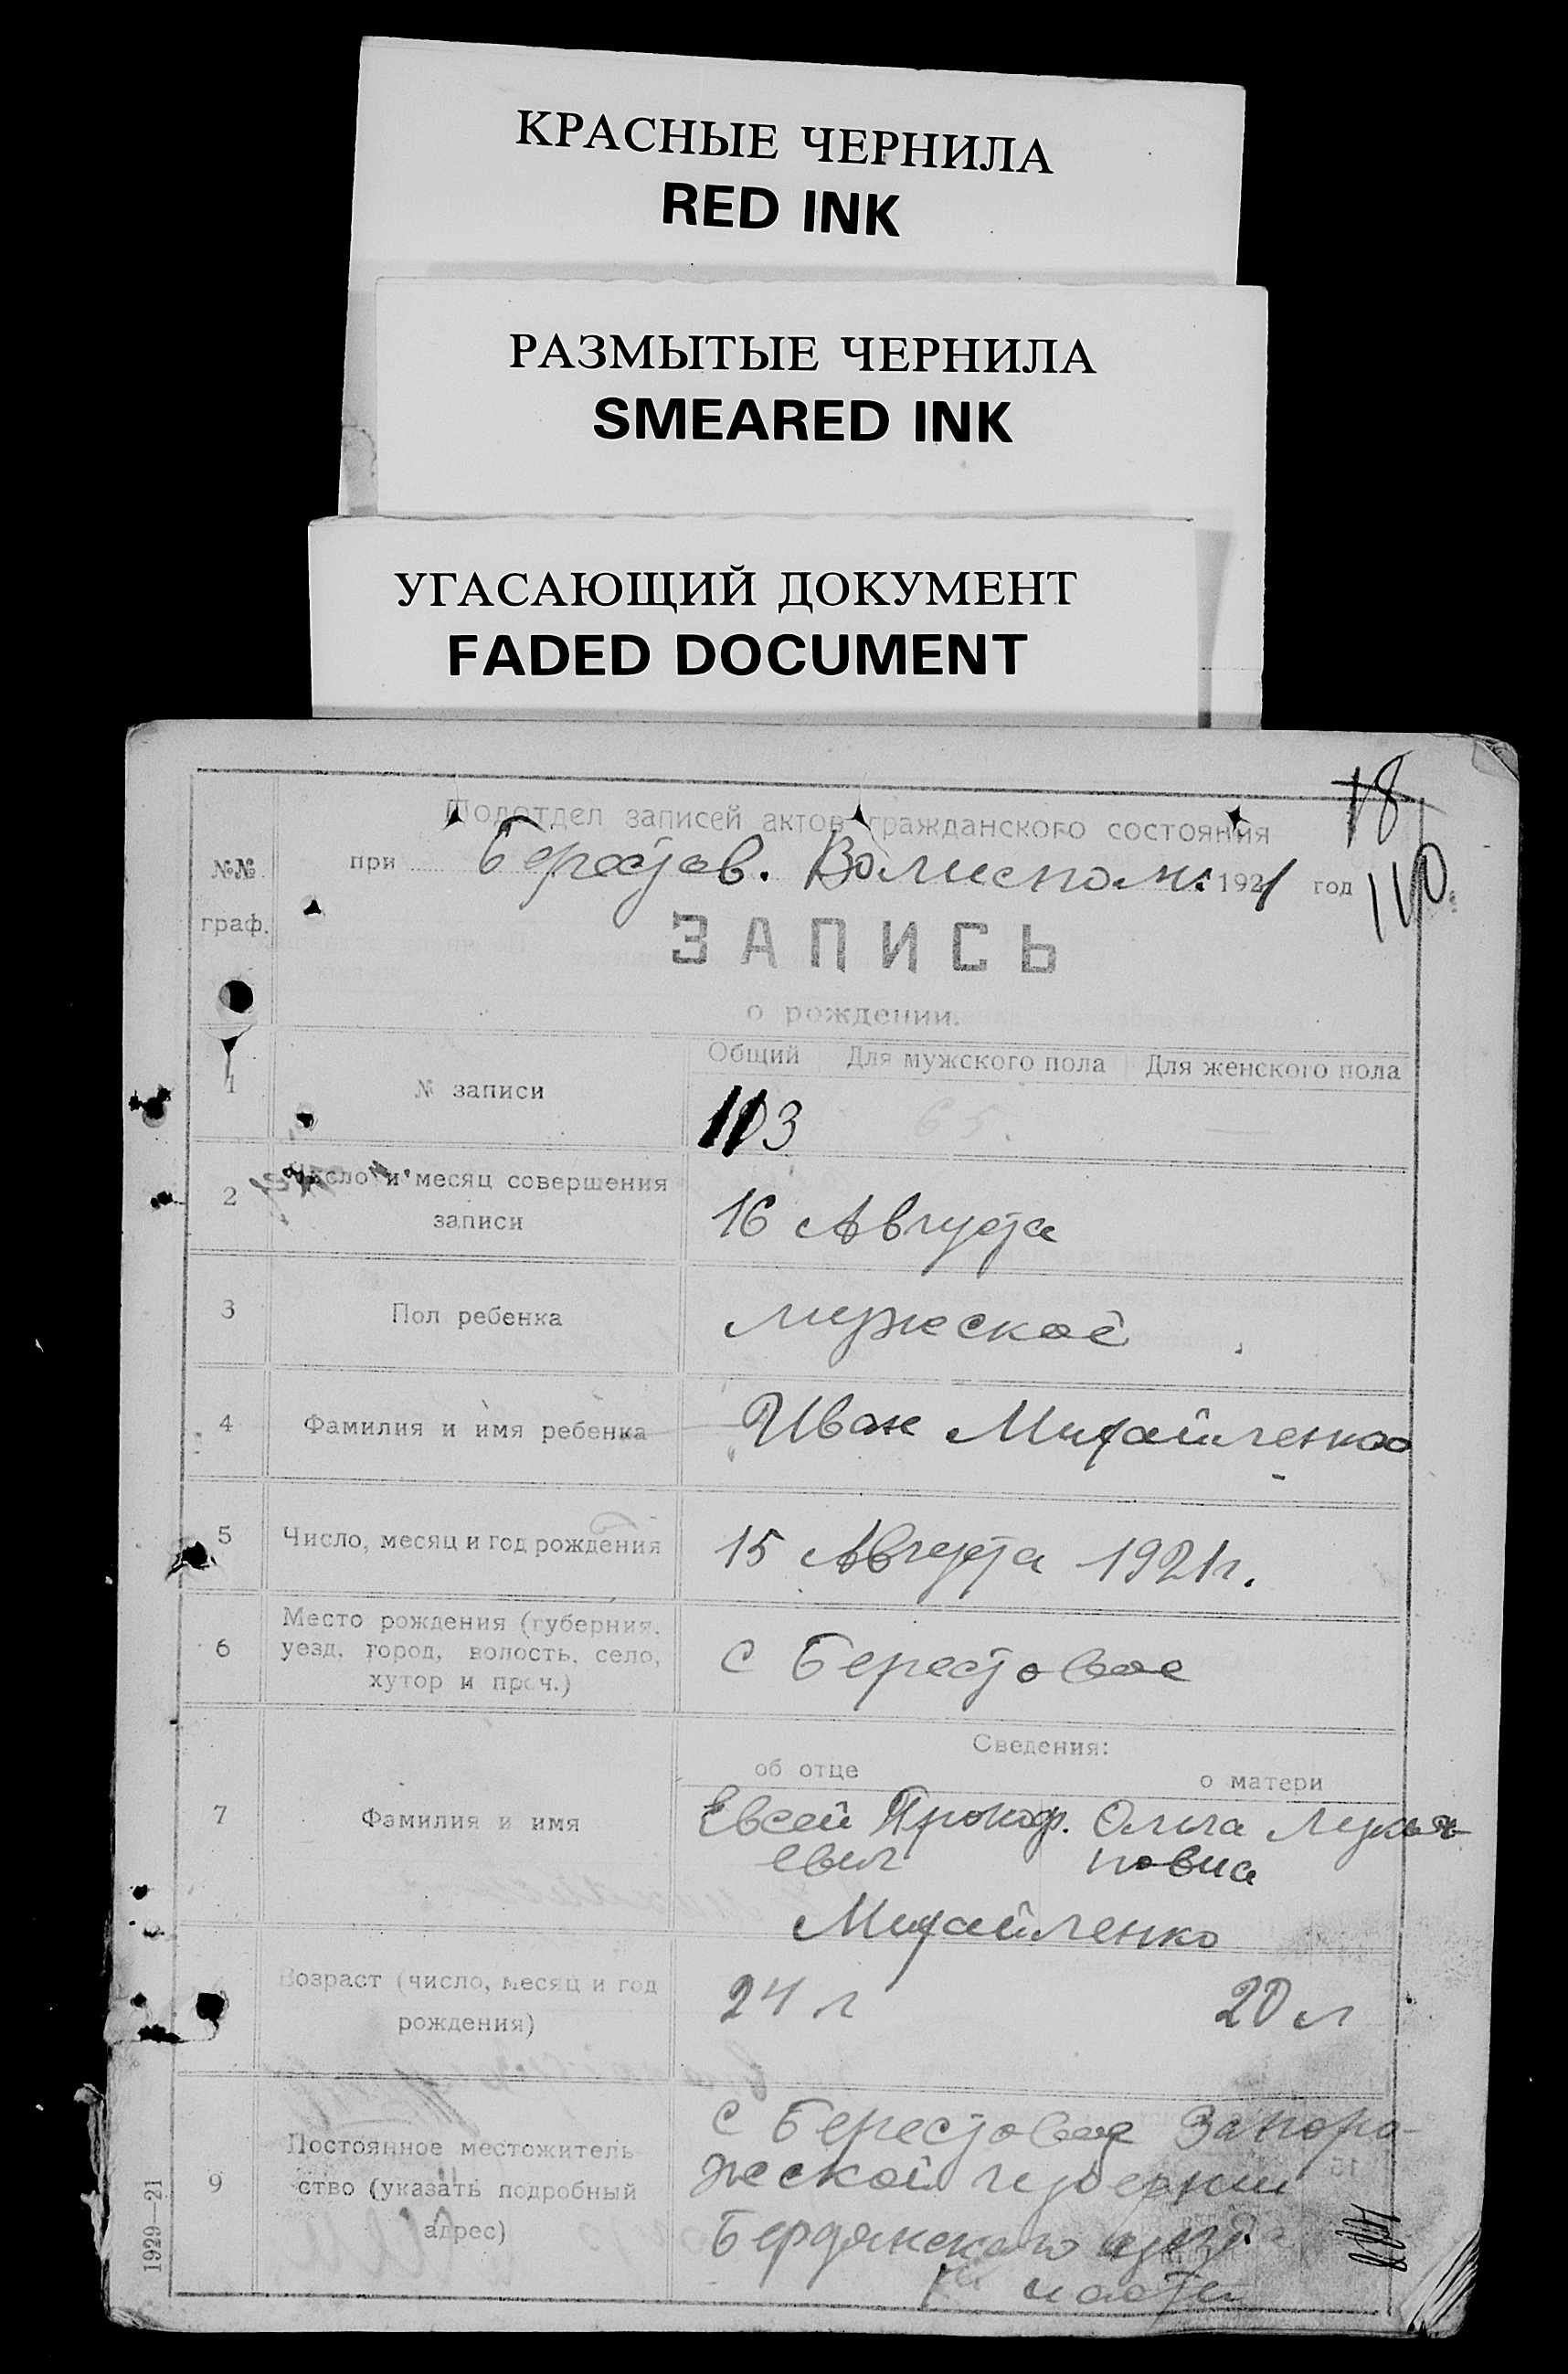 КРАСНЫЕ ЧЕРНИЛА
RED INK
РАЗМЫТЫЕ ЧЕРНИЛА
SMEARED INK
УГАСАЮЩИЙ ДОКУМЕНТ
FADED DOCUMENT
18
Подотдел записей актов гражданского состояния
№№ граф.
при Берестов. Волисполк. 1921 год
110
ЗАПИСЬ
о рождении.
Общий Для мужского пола Для женского пола
1 № записи 103 65. —
2 Число и месяц совершения
записи
16 Августа
3 Пол ребенка мужеской
4 Фамилия и имя ребенка Иван Михайленко
5 Число, месяц и год рождения 15 Августа 1921 г.
6 Место рождения (губерния,
уезд, город, волость, село,
хутор и проч.)
с Берестовое
Сведения:
об отце о матери
7 Фамилия и имя
Евсей Прокоф. Ольга Лукья
евич новна
Михайленко
Возраст (число, месяц и год
рождения)
24 г 20 л
9 Постоянное местожитель-
ство (указать подробный
адрес)
с Берестовое Запоро-
жской губернии
Бердянского уезда
1929—21